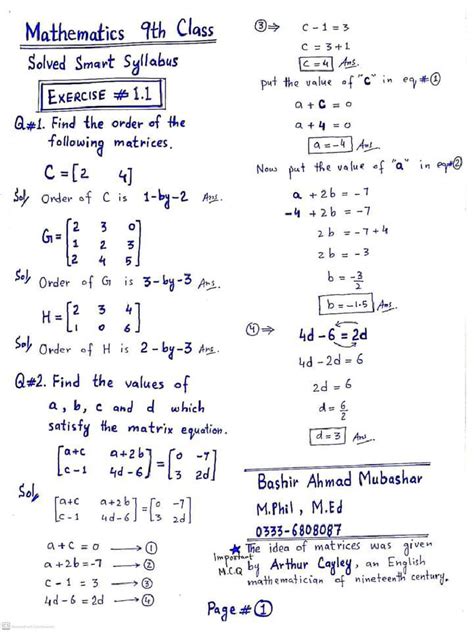 Mathematics 9th Class
Solved Smart Syllabus
EXERCISE # 1.1
Q#1. Find the order of the
following matrices.
C = [2 4]
Sol, Order of C is 1-by-2 Ans.
G = [2 3 0
1 2 3
2 4 5]
Sol, Order of G is 3-by-3 Ans.
H = [2 3 4
1 0 6]
Sol, Order of H is 2-by-3 Ans.
Q#2. Find the values of
a, b, c and d which
satisfy the matrix equation.
[a+c a+2b
c-1 4d-6] = [0 -7
3 2d]
Sol,
[a+c a+2b
c-1 4d-6] = [0 -7
3 2d]
a+c = 0 → ①
a+2b = -7 → ②
c-1 = 3 → ③
4d-6 = 2d → ④
③ ⇒ c-1 = 3
c = 3+1
c = 4 Ans.
put the value of "c" in eq#①
a+c = 0
a+4 = 0
a = -4 Ans.
Now put the value of "a" in eq#②
a + 2b = -7
-4 + 2b = -7
2b = -7+4
2b = -3
b = -3/2
b = -1.5 Ans.
④ ⇒ 4d-6 = 2d
4d-2d = 6
2d = 6
d = 6/2
d = 3 Ans.
Bashir Ahmad Mubashar
M.Phil, M.Ed
0333-6808087
★ The idea of matrices was given
Important M.C.Q by Arthur Cayley, an English
mathematician of nineteenth century.
Page # ①